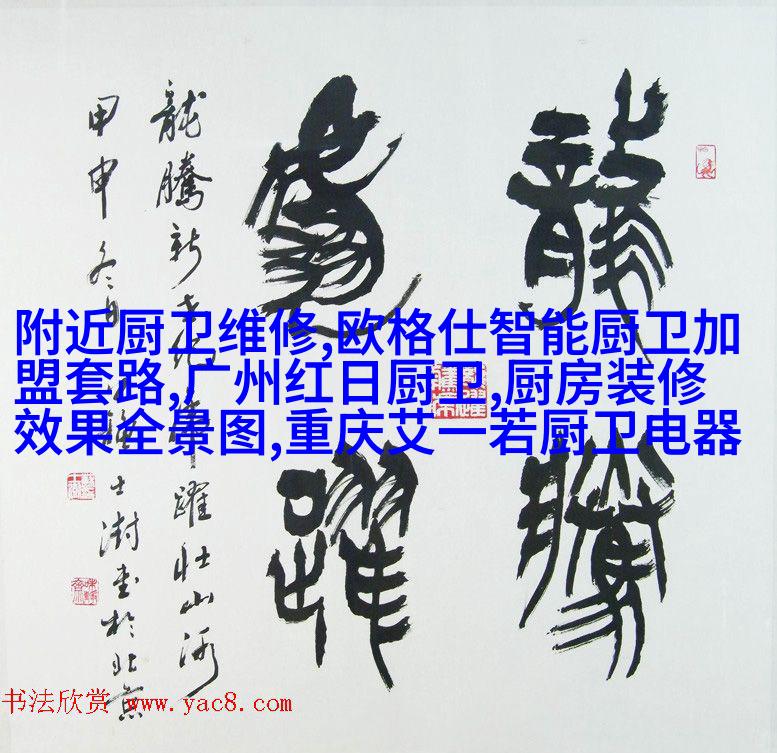 龍騰
虎躍
龍騰新世 躍壯山河
甲申冬月 士澍书於北京
附近厨卫维修,欧格仕智能厨卫加
盟套路,广州红日厨卫,厨房装修
效果全景图,重庆艾一若厨卫电器
书法欣赏 www.yac8.com